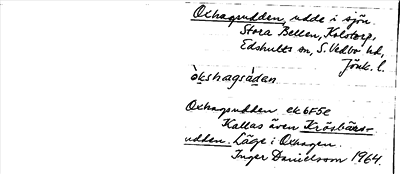 Oxhagsudden, udde i sjön
Stora Bellen, Kolstorp,
Edshults sn, S. Vedbo hd,
Jönk. l.
òkshagsùdan
Oxhagsudden ek 6F5e
Kallas även Krösbärs-
udden. Läge i Oxhagen.
Inger Danielsson 1964.